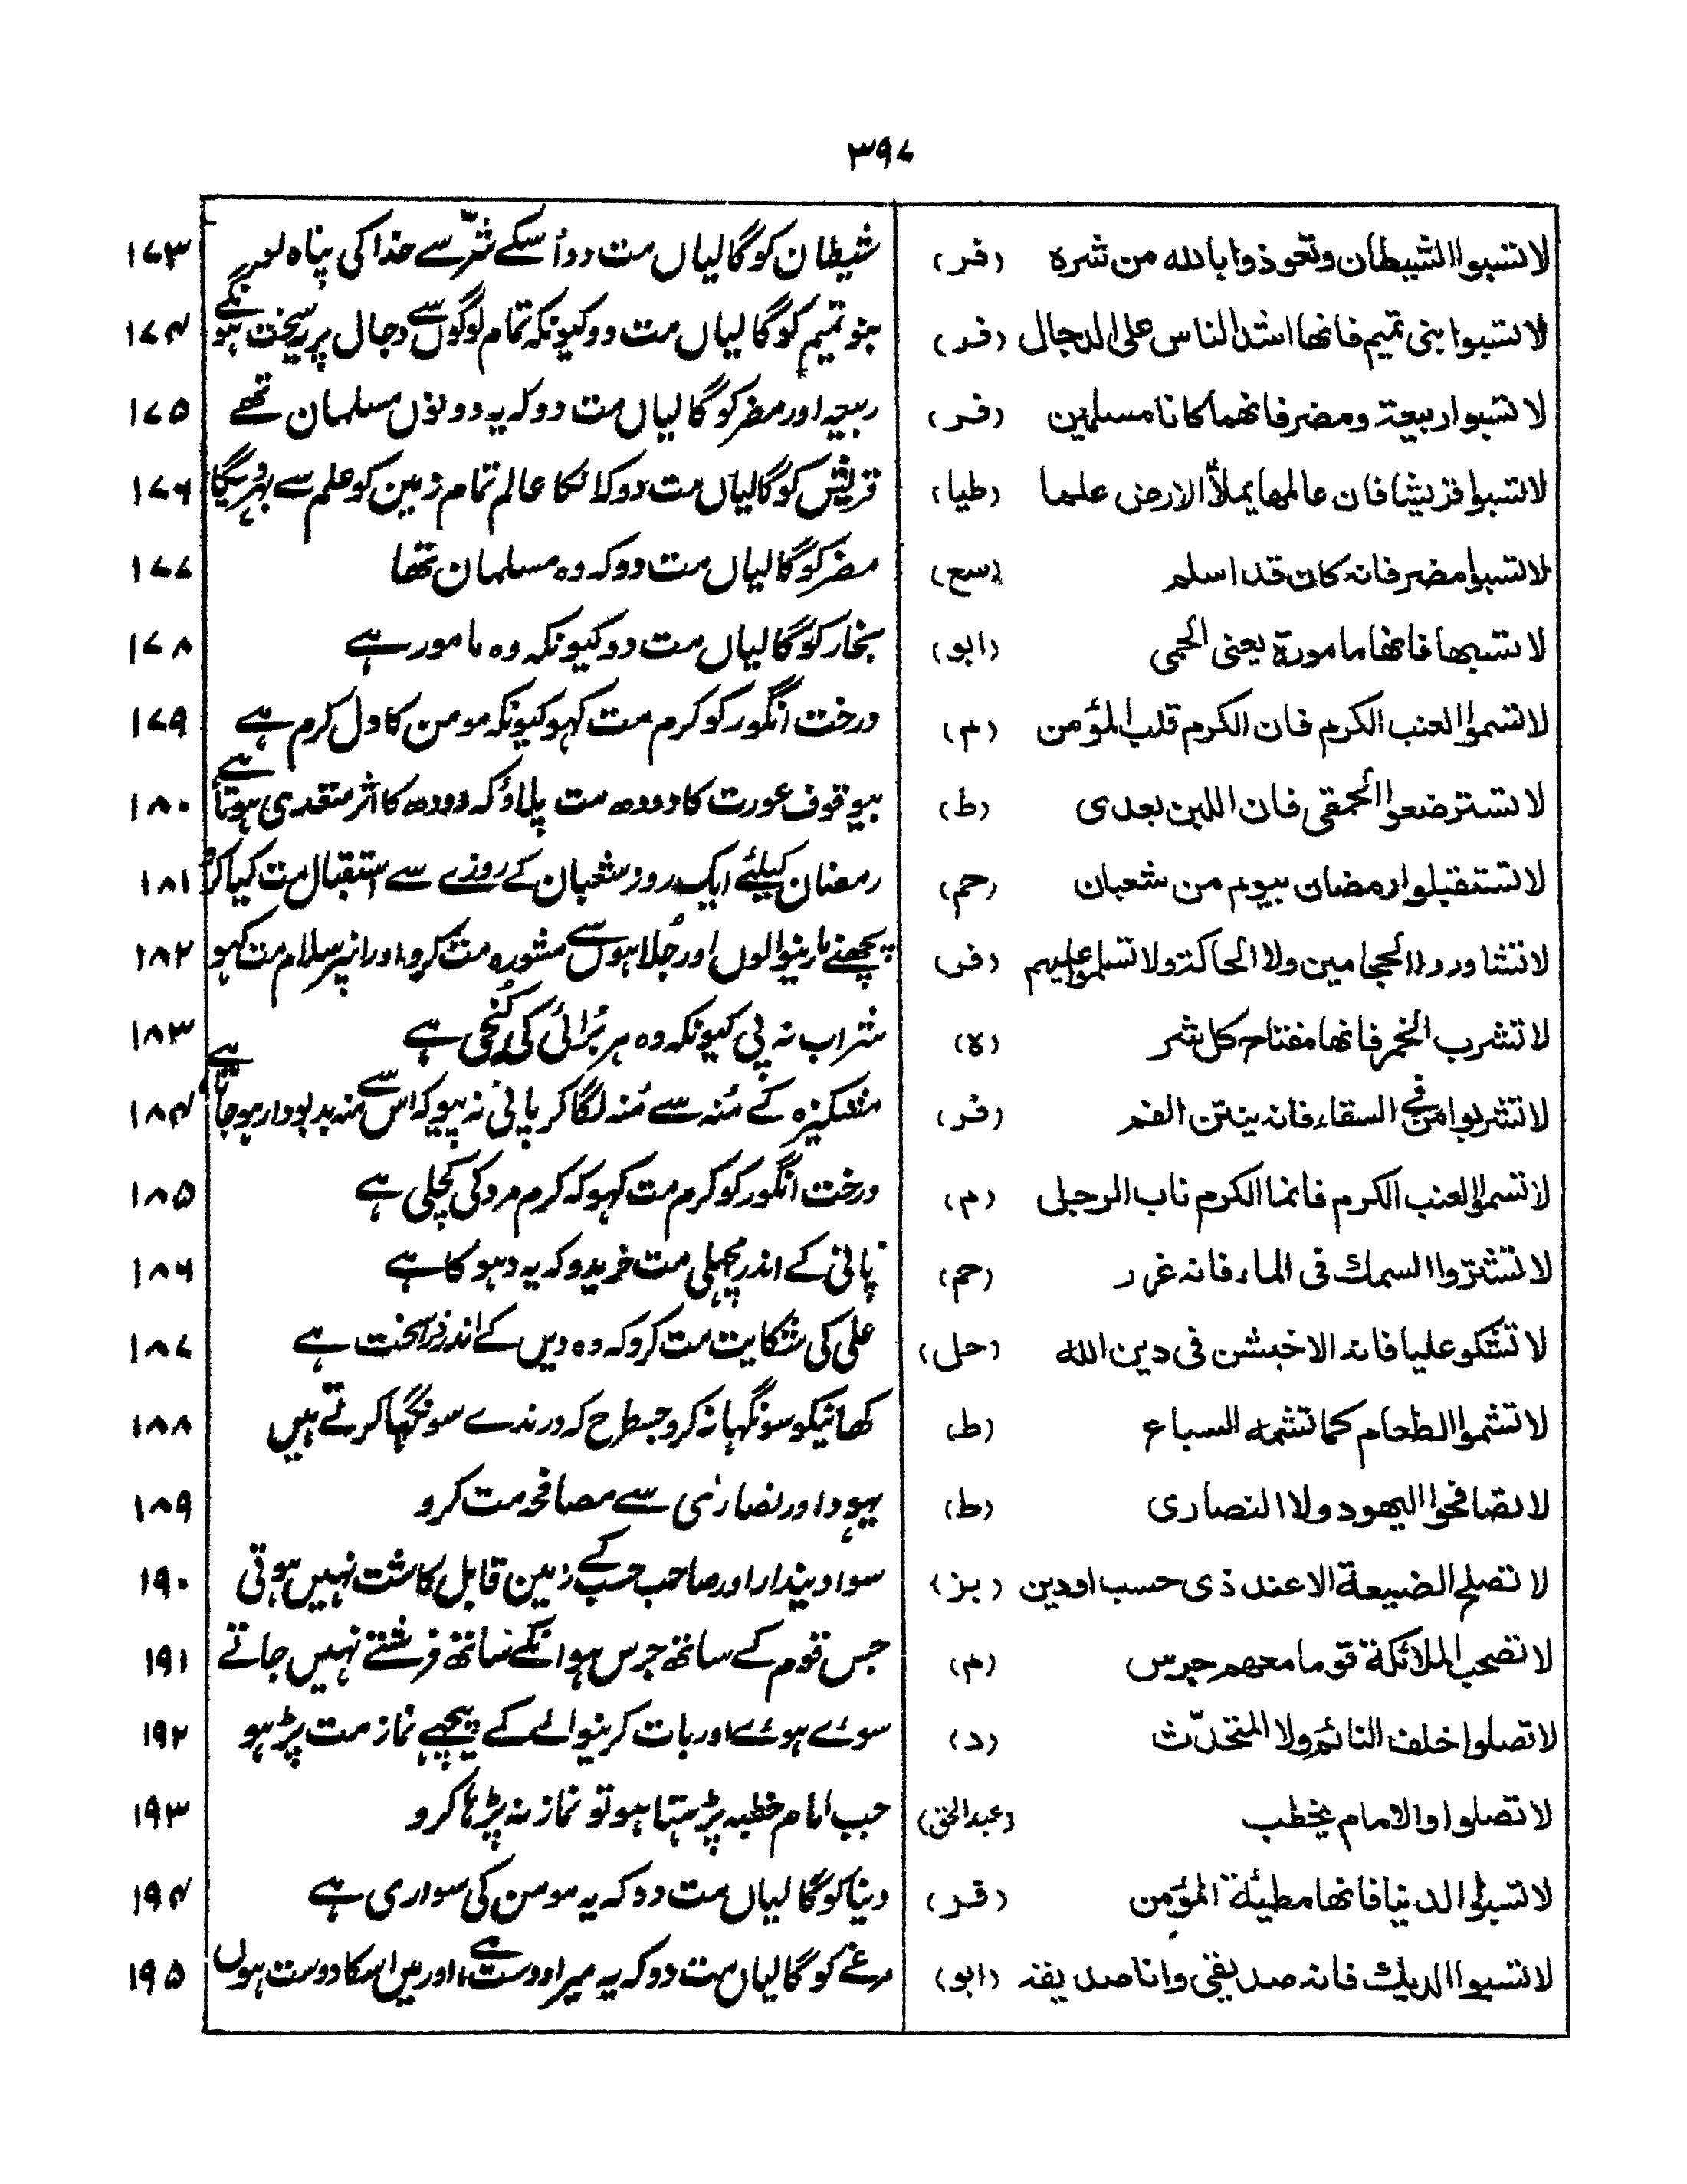 ۳۹۷
لا تسبوا الشیطان وتعوذوا بالله من شره (فر) شیطان کو گالیاں مت دو اُسکے شرّ سے خدا کی پناہ لو ۱۷۳
لا تسبوا بنی تمیم فانھا اشد الناس علی الدجال (فر) بنو تمیم کو گالیاں مت دو کیونکہ تمام لوگوں سے دجال پر یہ سخت ہونگے ۱۷۴
لا تسبوا ربیعة ومضر فانھما کانا مسلمین (فر) ربیعہ اور مضر کو گالیاں مت دو کہ یہ دونوں مسلمان تھے ۱۷۵
لا تسبوا قریشا فان عالمھا یملأ الارض علما (طیا) قریش کو گالیاں مت دو کہ انکا عالم تمام زمین کو علم سے بہر دیگا ۱۷۶
لا تسبوا مضر فانه کان قد اسلم (سع) مضر کو گالیاں مت دو کہ وہ مسلمان تھا ۱۷۷
لا تسبھا فانھا مامورة یعنی الحمی (ابو) بخار کو گالیاں مت دو کیونکہ وہ مامور ہے ۱۷۸
لا تسموا العنب الکرم فان الکرم قلب المؤمن (م) درخت انگور کو کرم مت کہو کیونکہ مومن کا دل کرم ہے ۱۷۹
لا تسترضعوا الحمقی فان اللبن یعدی (ط) بیوقوف عورت کا دودھ مت پلاؤ کہ دودھ کا اثر متعدی ہوتا ہے ۱۸۰
لا تستقبلوا رمضان بیوم من شعبان (حم) رمضان کیلئے ایک روز شعبان کے روزے سے استقبال مت کیا کرو ۱۸۱
لا تشاوروا الحجامین ولا الحاکة ولا تسلموا علیھم (فر) پچھنے مارنیوالوں اور جُلاہوں سے مشورہ مت کرو اور انپر سلام مت کہو ۱۸۲
لا تشرب الخمر فانھا مفتاح کل شر (ہ) شراب نہ پی کیونکہ وہ ہر بُرائی کی کُنجی ہے ۱۸۳
لا تشربوا من فی السقاء فانه ینتن الفم (فر) مشکیزہ کے مُنہ سے مُنہ لگا کر پانی نہ پیو کہ اس سے منہ بدبودار ہو جاتا ہے ۱۸۴
لا تسموا العنب الکرم فانما الکرم ناب الرجلی (م) درخت انگور کو کرم مت کہو کہ کرم مرد کی کچلی ہے ۱۸۵
لا تشتروا السمك فی الماء فانه غرر (حم) پانی کے اندر مچہلی مت خریدو کہ یہ دہوکا ہے ۱۸۶
لا تشکو علیا فانه الاخیشن فی دین الله (حل) علی کی شکایت مت کرو کہ وہ دیں کے اندر ذرا سخت ہے ۱۸۷
لا تشموا الطعام کما تشمه السباع (ط) کھانیکو سونگہا نہ کرو جسطرح کہ درندے سونگہا کرتے ہیں ۱۸۸
لا تصافحوا الیھود ولا النصاری (ط) یہود اور نصاریٰ سے مصافحہ مت کرو ۱۸۹
لا تصلح الضیعة الا عند ذی حسب او دین (بز) سوا دیندار اور صاحب حسب کے زمین قابل کاشت نہیں ہوتی ۱۹۰
لا تصحب الملائکة قوما معھم جرس (م) جس قوم کے ساتھ جرس ہو انکے ساتھ فرشتے نہیں جاتے ۱۹۱
لا تصلوا خلف النائم ولا المتحدّث (د) سوئے ہوئے اور بات کرنیوالے کے پیچہے نماز مت پڑہو ۱۹۲
لا تصلوا والامام یخطب (عبدالحق) جب امام خطبہ پڑہتا ہو تو نماز نہ پڑہا کرو ۱۹۳
لا تسبوا الدنیا فانھا مطیئة المؤمن (قر) دنیا کو گالیاں مت دو کہ یہ مومن کی سواری ہے ۱۹۴
لا تسبوا الدیك فانه صدیقی وانا صدیقه (ابو) مرغے کو گالیاں مت دو کہ یہ میرا دوست ہے، اور میں اسکا دوست ہوں ۱۹۵